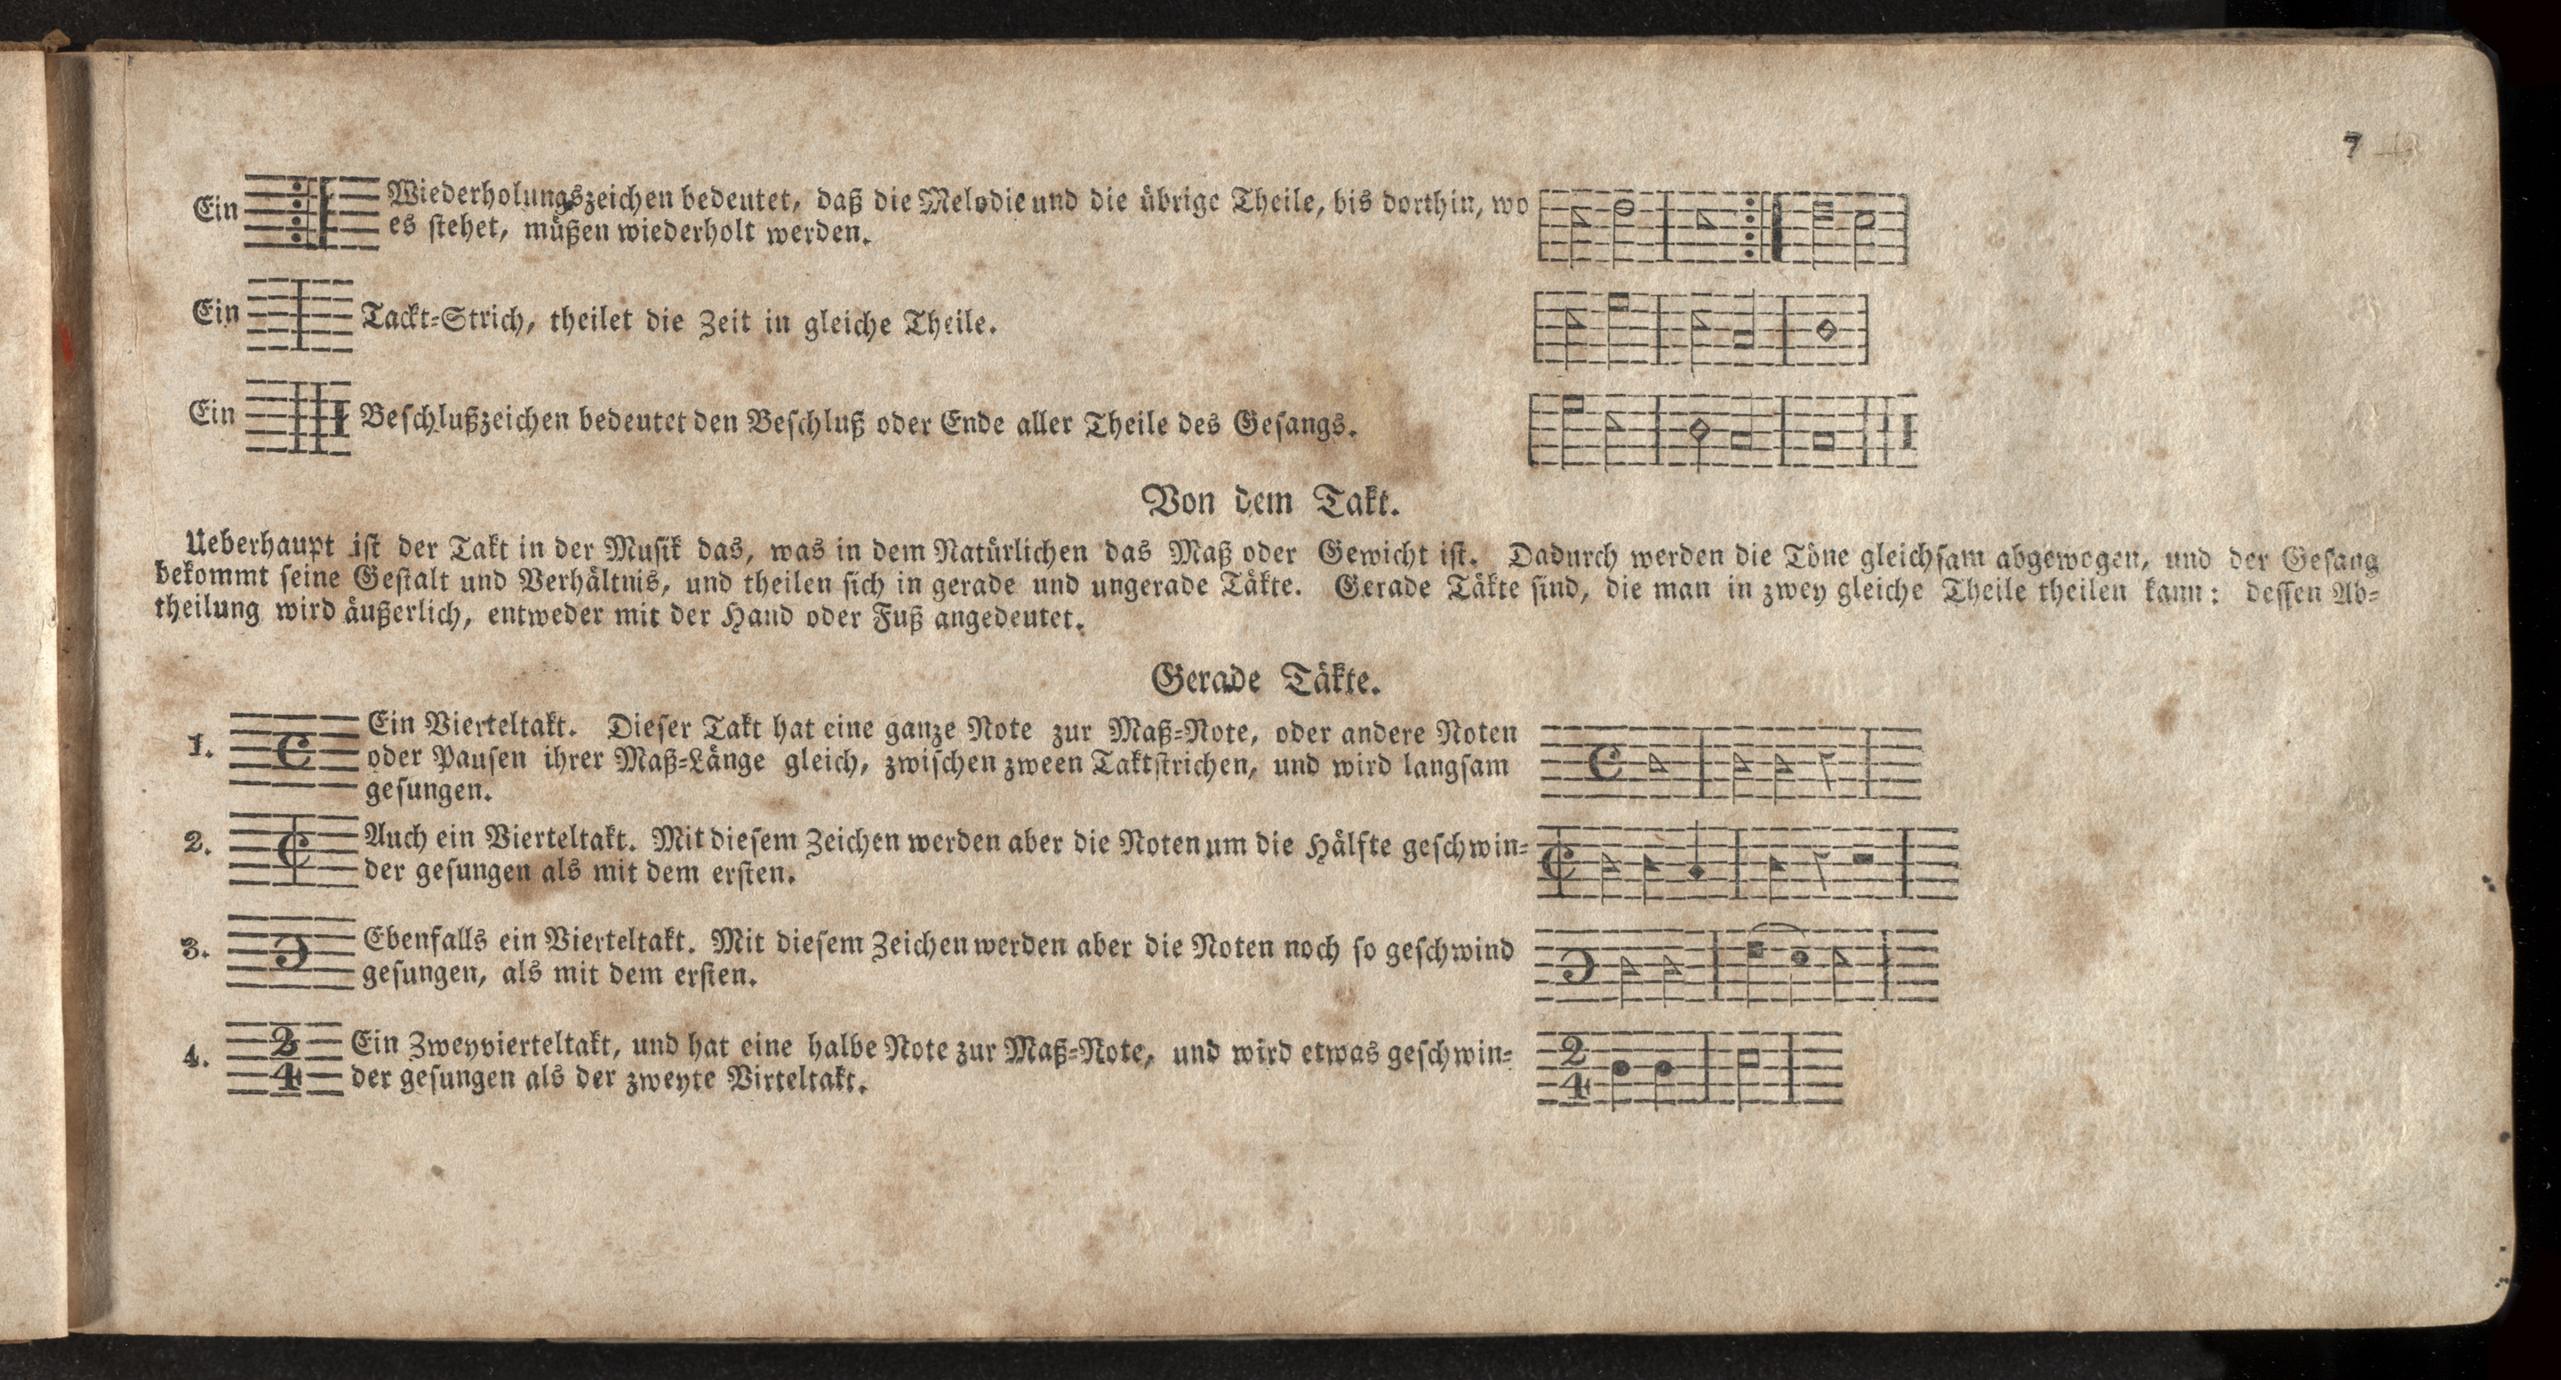 7
Ein Wiederholungszeichen bedeutet, daß die Melodie und die übrige Theile, bis dorthin, wo
es stehet, müßen wiederholt werden.
Ein Tackt-Strich, theilet die Zeit in gleiche Theile.
Ein Beschlußzeichen bedeutet den Beschluß oder Ende aller Theile des Gesangs.
Von dem Takt.
Ueberhaupt ist der Takt in der Musik das, was in dem Natürlichen das Maß oder Gewicht ist. Dadurch werden die Töne gleichsam abgewogen, und der Gesang
bekommt seine Gestalt und Verhältnis, und theilen sich in gerade und ungerade Täkte. Gerade Täkte sind, die man in zwey gleiche Theile theilen kann: dessen Ab-
theilung wird äußerlich, entweder mit der Hand oder Fuß angedeutet.
Gerade Täkte.
1. C Ein Vierteltakt. Dieser Takt hat eine ganze Note zur Maß-Note, oder andere Noten C
oder Pausen ihrer Maß-Länge gleich, zwischen zween Taktstrichen, und wird langsam
gesungen.
2. Auch ein Vierteltakt. Mit diesem Zeichen werden aber die Noten um die Hälfte geschwin-
der gesungen als mit dem ersten.
3. Ebenfalls ein Vierteltakt. Mit diesem Zeichen werden aber die Noten noch so geschwind
gesungen, als mit dem ersten.
4. 2/4 Ein Zweyvierteltakt, und hat eine halbe Note zur Maß-Note, und wird etwas geschwin- 2/4
der gesungen als der zweyte Virteltakt.